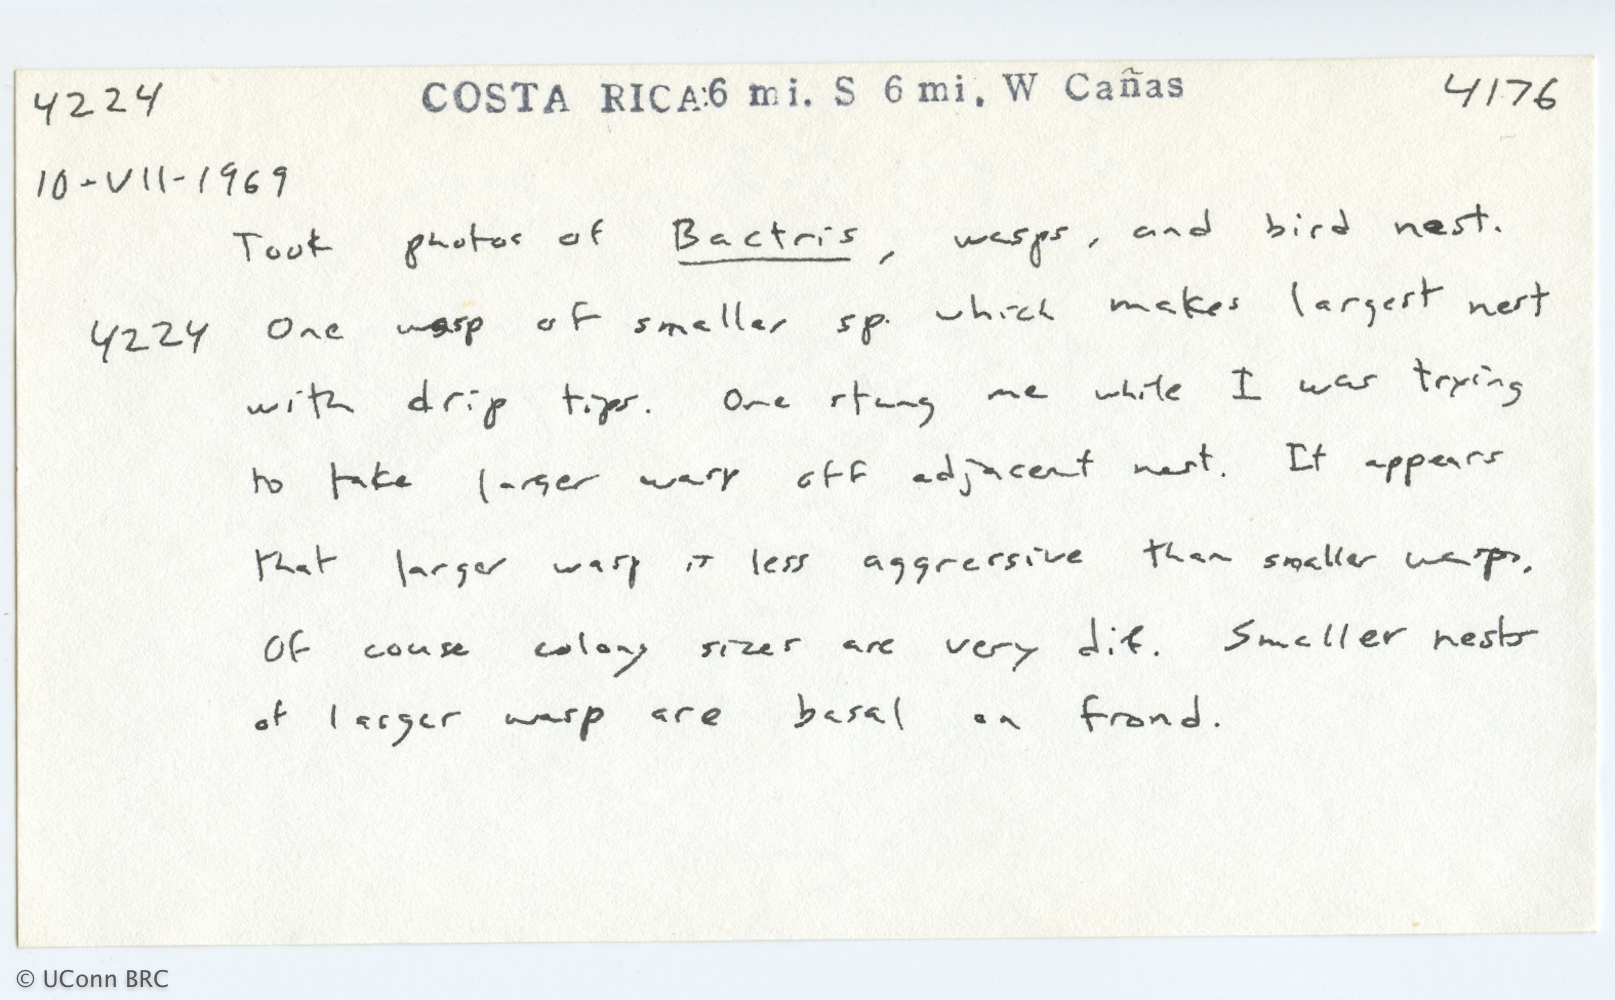 4224 COSTA RICA:6 mi. S 6 mi. W Cañas 4176
10-VII-1969
Took photos of Bactris, wasps, and bird nest.
4224 One wasp of smaller sp. which makes largest nest
with drip tips. One stung me while I was trying
to take larger wasp off adjacent nest. It appears
that larger wasp is less aggressive than smaller wasps.
Of couse colony sizes are very dif. Smaller nests
of larger wasp are basal on frond.
© UConn BRC